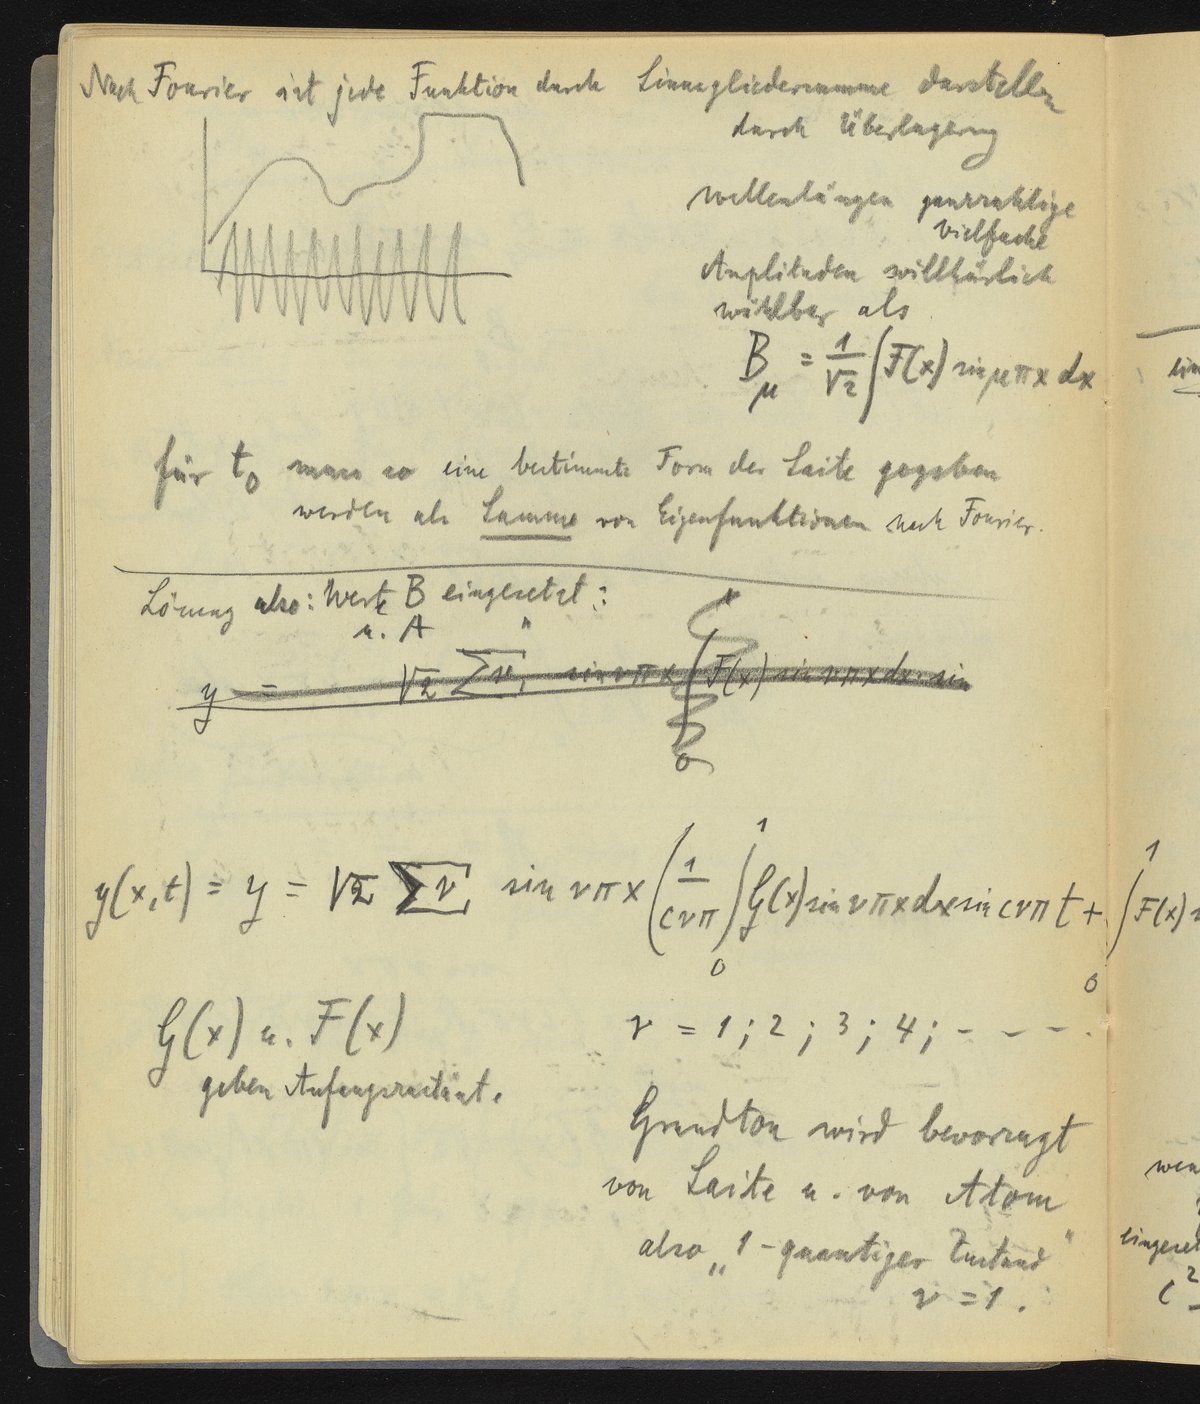 Nach Fourier ist jede Funktion durch Sinusgliedersumme darstellen
durch Überlagerung
Wellenlängen ganzzahlige
Vielfache
Amplituden willkürlich
wählbar als
B_μ = 1/√2 ∫ F(x) sin μπx dx
für t₀ muss so eine bestimmte Form der Saite gegeben
werden als Summe von Eigenfunktionen nach Fourier.
Lösung also: Werte B eingesetzt:
u. A "
y = √2 Σν, sin νπx ∫ F(x) sin νπx dx · sin
y(x,t) = y = √2 Σν, sin νπx (1/cνπ ∫₀¹ G(x) sin νπx dx sin cνπ t + ∫₀¹ F(x) s
G(x) u. F(x)
geben Anfangszustänt.
ν = 1; 2; 3; 4; - - - .
Grundton wird bevorzugt
von Saite u. von Atom
also „1-quantiger Zustand"
ν = 1.
ein
wen
eingeset
c²